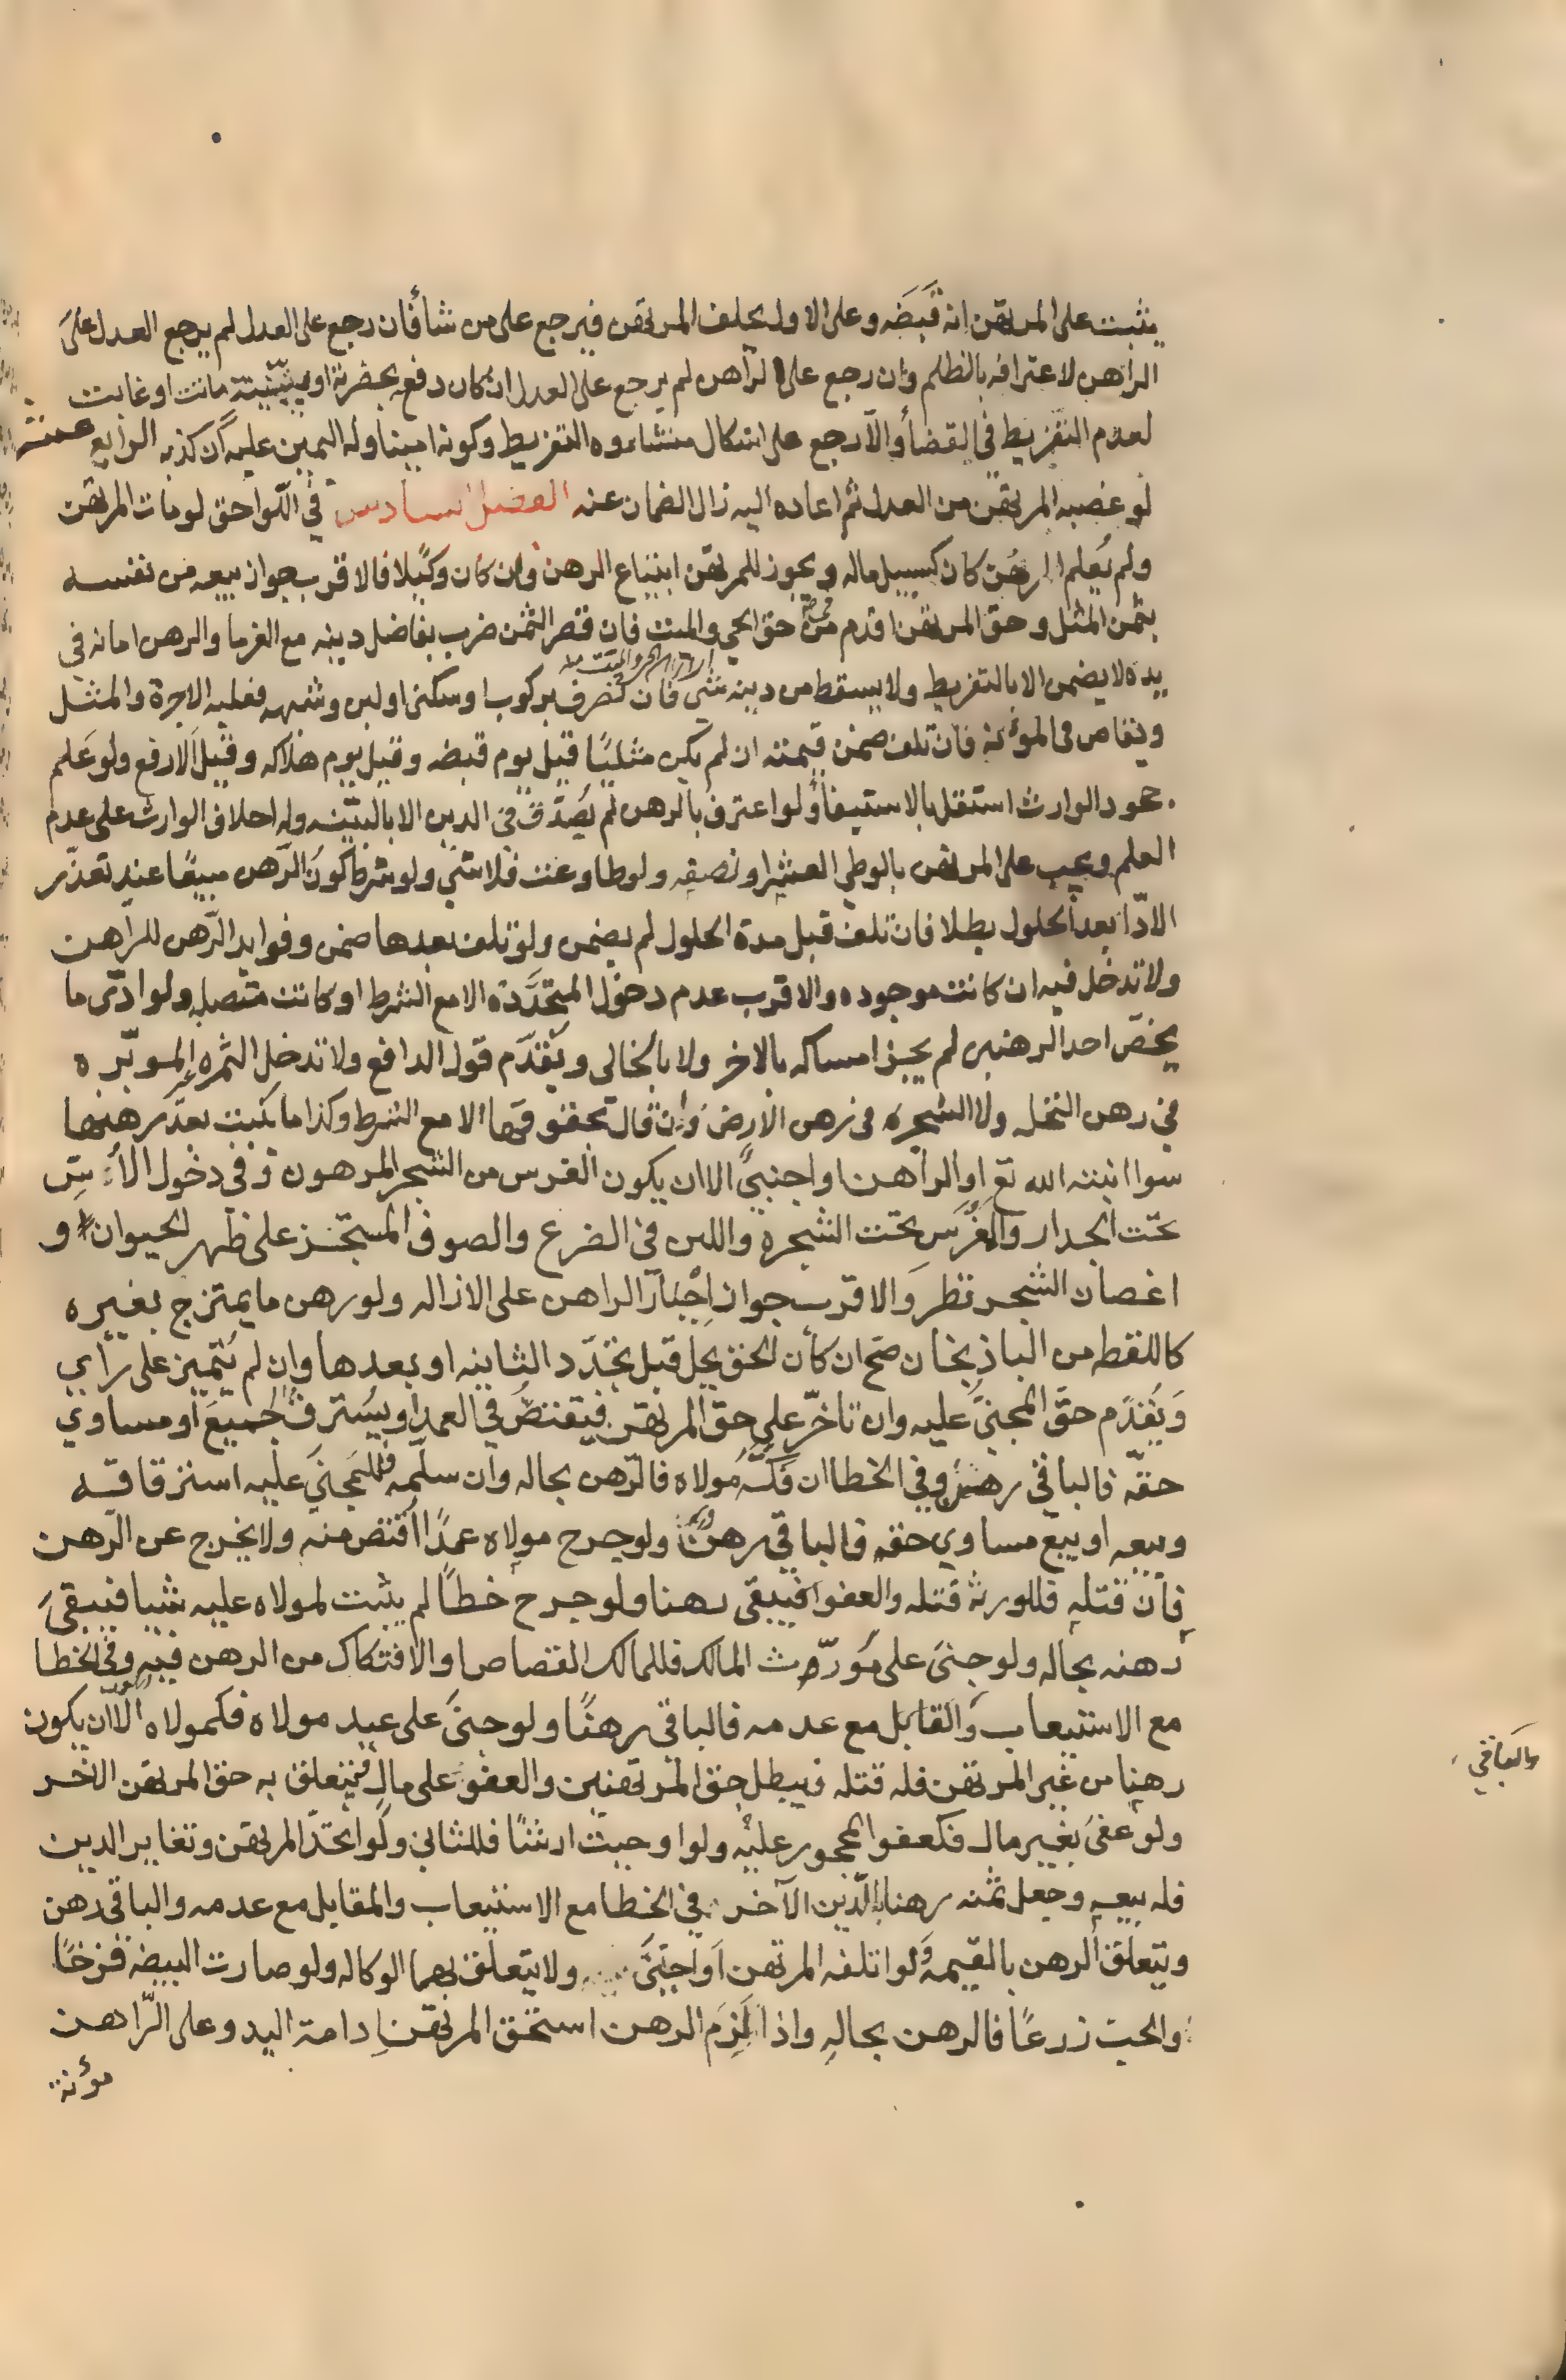 يثبت على المرتهن انه قَبَضَه وعلى الاول يحلف المرتهن فيرجع على من شاء فان رجع على العدل لم يرجع العدل على
الراهن لاعترافه بالظلم وان رجع على الراهن لم يرجع على العدل ان كان دفع بحضرته او ببيّنة ماتت او غابت
لعدم التفريط فى القضاء والا رجع على اشكال منشاءه التفريط وكونه امينا وله اليمين عليه ان كذبه الرابع عشر
لو غصبه المرتهن من العدل ثم اعاده اليه زال الضمان عنه الفصل السادس في اللواحق لو مات المرتهن
ولم يُعلم الرهن كان كسبيل ماله ويجوز للمرتهن ابتياع الرهن وان كان وكيلا فالاقرب جواز بيعه من نفسه
بثمن المثل وحق المرتهن اقدم من حق الحي والميت فان قصر الثمن ضرب بفاضل دينه مع الغرما والرهن امانه في
يده لا يضمن الا بالتفريط ولا يسقط من دينه شي فان تصرف بركوب او سكنى او لبن وشبهه فعليه الاجرة والمثل
ويقاص فى المؤنة فان تلف ضمن قيمته ان لم يكن مثليًا قيل يوم قبضه وقيل يوم هلاكه وقيل الارفع ولو عَلم
جحود الوارث استقل بالاستيفاء ولو اعترف بالرهن لم يُصَدَّق في الدين الا بالبيّنه وله احلاف الوارث على عدم
العلم ويجب على المرتهن بالوطي العشر او نصفه ولو طاوعت فلا شي ولو شرط كون الرّهن مبيعًا عند تعذّر
الادّا بعد الحلول بطلا فان تلف قبل مدة الحلول لم يضمن ولو تلف بعدها ضمن وفوايد الرّهن للراهن
ولا تدخل فيه ان كانت موجوده والاقرب عدم دخول المتجدّدة الا مع الشرط او كانت متصله ولو ادّى ما
يخصّ احد الرهنين لم يجز امساكه بالاخر ولا بالخالى ويُقدّم قول الدافع ولا تدخل الثمره الموبّره
في رهن النخل ولا الشجره فى رهن الارض وان قال بحقوقها الا مع الشرط وكذا ما ينبت بعد رهنها
سوا انبته الله تع او الراهن او اجنبيٌّ الا ان يكون الغرس من الشجر المرهون وفي دخول الأُسّ
تحت الجدار والمغرس تحت الشجرة واللبن فى الضرع والصوف المستجز على ظهر الحيوان و
اغصان الشجر نظر والاقرب جواز اِجْبَار الراهن على الازاله ولو رهن ما يمتزج بغيره
كاللقطه من الباذنجان صح ان كان الحق يحلّ قبل تجدّد الثانيه او بعدها وان لم يتميز على راي
وَيُقدّم حقّ المجنى عليه وان تاخّر على حق المرتهن فيقتصّ في العمد او يسترق الجميع او مساوي
حقّه فالباقي رهن وفي الخطا ان فكّهُ مولاه فالرّهن بحاله وان سلّمه فللمجنى عليه استرقاقه
وبيعه او بيع مساوي حقه فالباقي رهن ولو جرح مولاه عمدًا اقتص منه ولا يخرج عن الرّهن
فان قتله فللورثه قتله والعفو فيبقى رهنا ولو جرح خطاً لم يثبت لمولاه عليه شيا فيبقى
رهنه بحاله ولو جنى على مُورّث المالك فللمالك القصاص او الافتكاك من الرهن فيه وفي الخطا
مع الاستيعاب والمقابل مع عدمه فالباقي رهنًا ولو جنى على عبد مولاه فكمولاه الا ان يكون
رهنا من غير المرتهن فله قتله فيبطل حق المرتهنين والعفو على مال فيتعلق به حق المرتهن الاخر
ولو عفى بغير مال فكعفو المحجور عليه ولو اوجبت ارشًا فللثاني ولو اتحدّ المرتهن وتغاير الدين
فله بيعه وجعل ثمنه رهنا بالدّين الآخر في الخطا مع الاستيعاب والمقابل مع عدمه والباقي رهن
ويتعلق الرهن بالقيمه لو اتلفه المرتهن او اجنبى ولا يتعلق بهما الوكاله ولو صارت البيضه فرخًا
والحب زرعًا فالرهن بحاله واذا لَزِمَ الرهن استحق المرتهن اِدامة اليد وعلى الرّاهن
مؤنة
والباقي